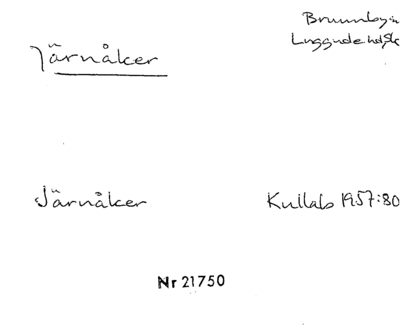 Järnåker
Brunnby sn
Luggude hd, Sk
Järnåker
Kullab 1957:80
Nr 21750